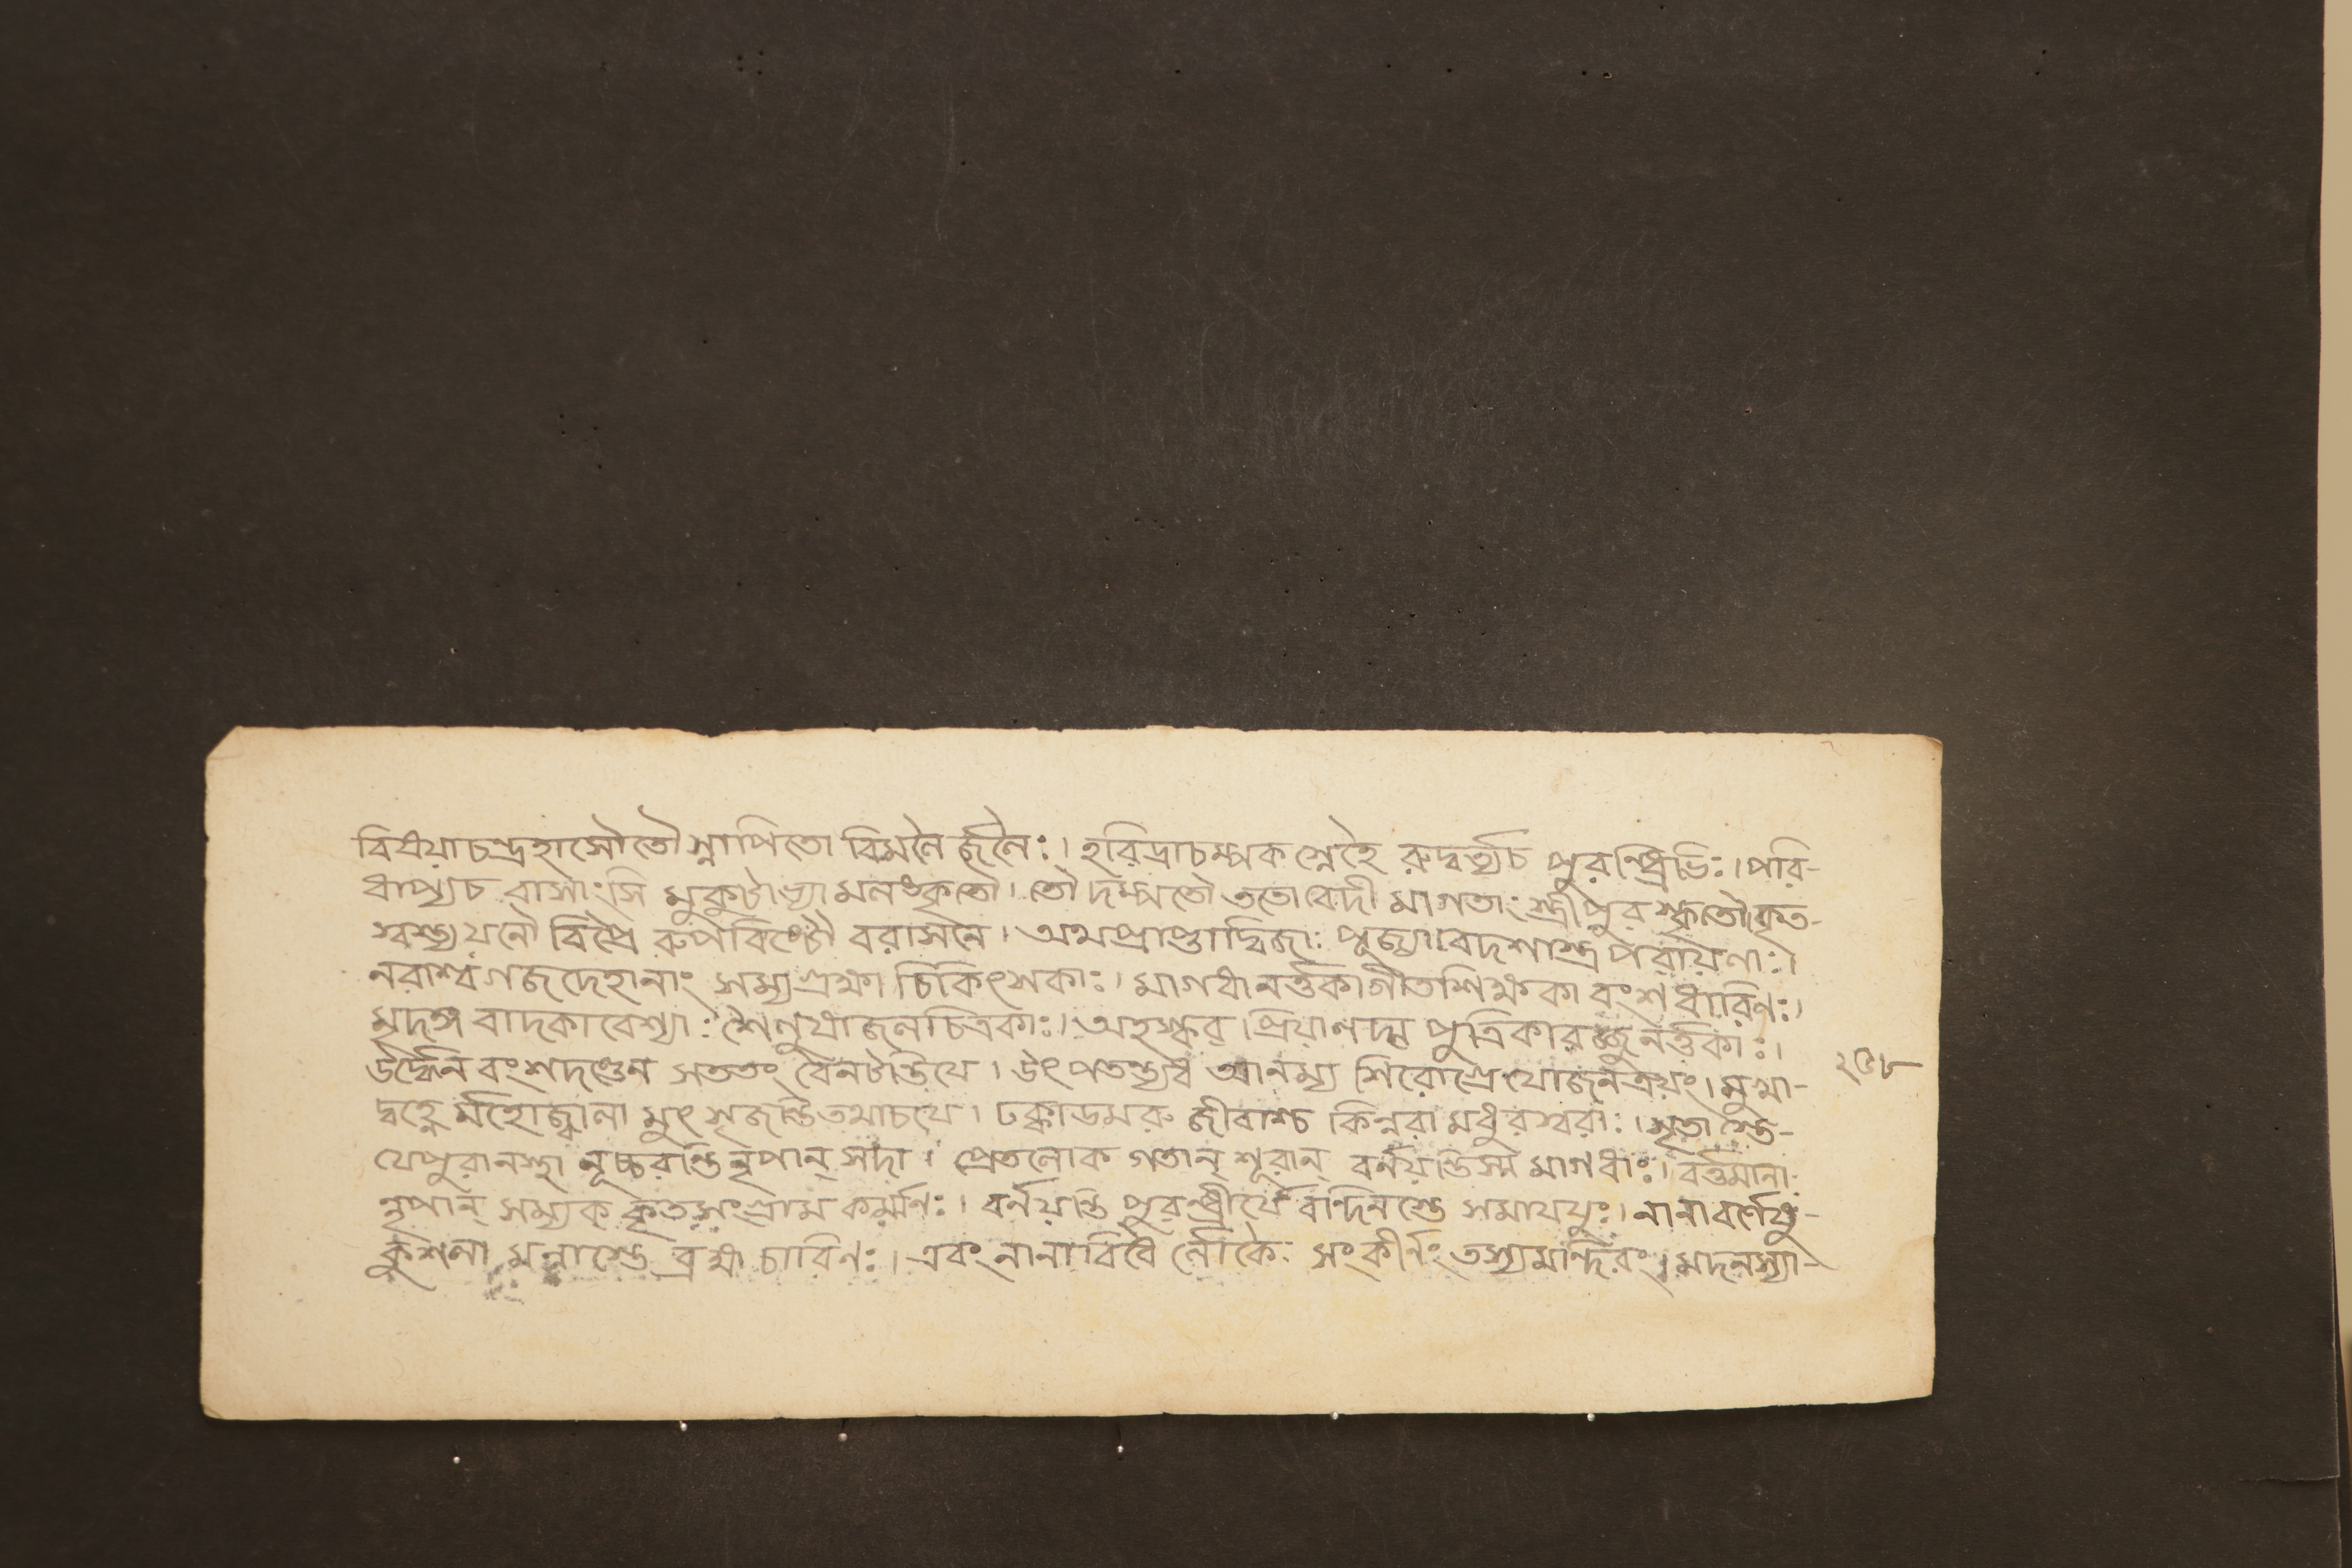 বিষয়াচন্দ্রহাসৌতৌ স্নাপিতো বিমলৈ র্জনৈঃ। হরিদ্রাচম্পক স্নেহৈ রুদ্বর্ত্ত্যচ পুরন্ধ্রিভিঃ। পরি-
ধাপ্যচ বাসাংসি মুকুটাভ্যা মলঙ্কৃতৌ। তৌ দম্পতৌ ততো বেদী মাগতাঃ স্ত্রীপুরস্কৃতৌ কৃত-
স্বস্ত্যয়নৌ বিপ্রৈ রুপবিষ্টৌ বরাসনে। অথপ্রাপ্তাদ্বিজাঃ পূজ্যা বেদশাস্ত্র পরায়ণাঃ।
নরাশ্ব গজদেহানাং সম্যগ্রক্ষা চিকিৎসকাঃ। মাগধানর্ত্তকাগীতশিক্ষকা বংশধারিণঃ।
মৃদঙ্গ বাদকাবেশ্যাঃ শৈলুষাজলচিত্রকাঃ। অহস্কর প্রিয়াপদ্ম পুত্রিকারজ্জুনর্ত্তকাঃ।
উর্দ্ধেন বংশদণ্ডেন সততং বৈনটান্তিযে। উৎপতন্ত্যধ আনম্য শিরোগ্রে যোজনত্রয়ং। মুখা-
দ্বহ্নে র্মহোজ্বালা মুৎসৃজন্তিতথাচযে। ঢক্কাডমরু জীবাশ্চ কিন্নরা মধুরস্বরাঃ। সূতা স্তে-
যেপুরানস্থা নূচ্চরন্তিনৃপান্ সদা। প্রেতলোক গতান্ শূরান্ বর্ণয়ন্তিস্ম মাগধাঃ। বর্ত্তমানা
নৃপান্ সম্যক্ কৃতসংগ্রাম কর্ম্মণঃ। বর্ণয়ন্তি পুরন্ধ্রীর্যে বন্দিনস্তে সমাযযুঃ। নানাবর্ণেষু-
কুশলা মল্লাস্তে ব্রহ্ম চারিণঃ। এবং নানাবিধৈ র্লোকৈঃ সংকীর্ণং তস্যমন্দিরং। মদনস্যা-